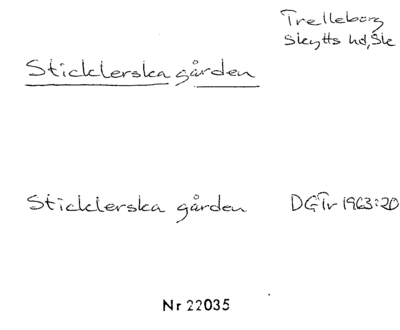 Trelleborg
Skytts hd, Sk
Sticklerska gården
Sticklerska gården DGTr 1963:20
Nr 22035